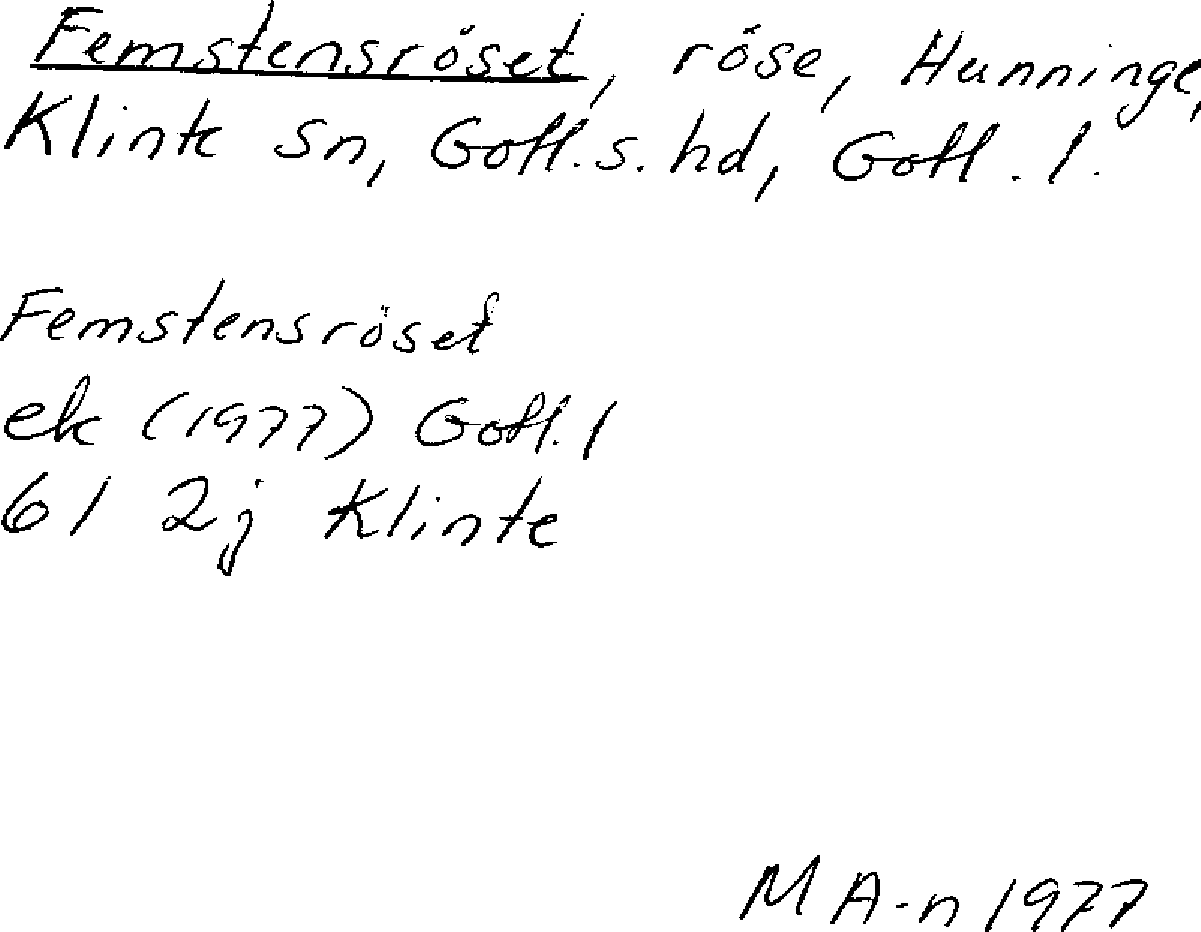 Femstensröset, röse, Hunninge,
Klinte sn, Gotl. s. hd, Gotl. l.
Femstensröset
ek (1977) Gotl. l
6I 2j Klinte
M A-n 1977